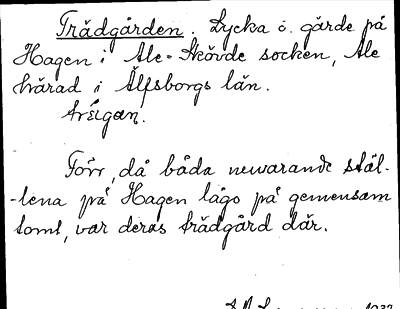 Trädgården. Lycka i gärde på
Hagen i Ale-Skövde socken, Ale
härad i Älfsborgs län.
tréigan.
Förr, då båda nuvarande stäl-
-lena på Hagen lågo på gemensam
tomt, var deras trädgård där.